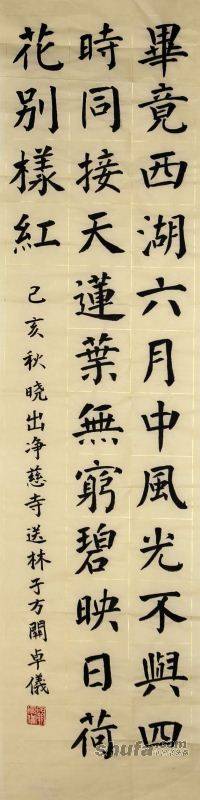 畢竟西湖六月中風光不與四
時同接天蓮葉無窮碧映日荷
花别樣紅
己亥秋晓出净慈寺送林子方關卓儀